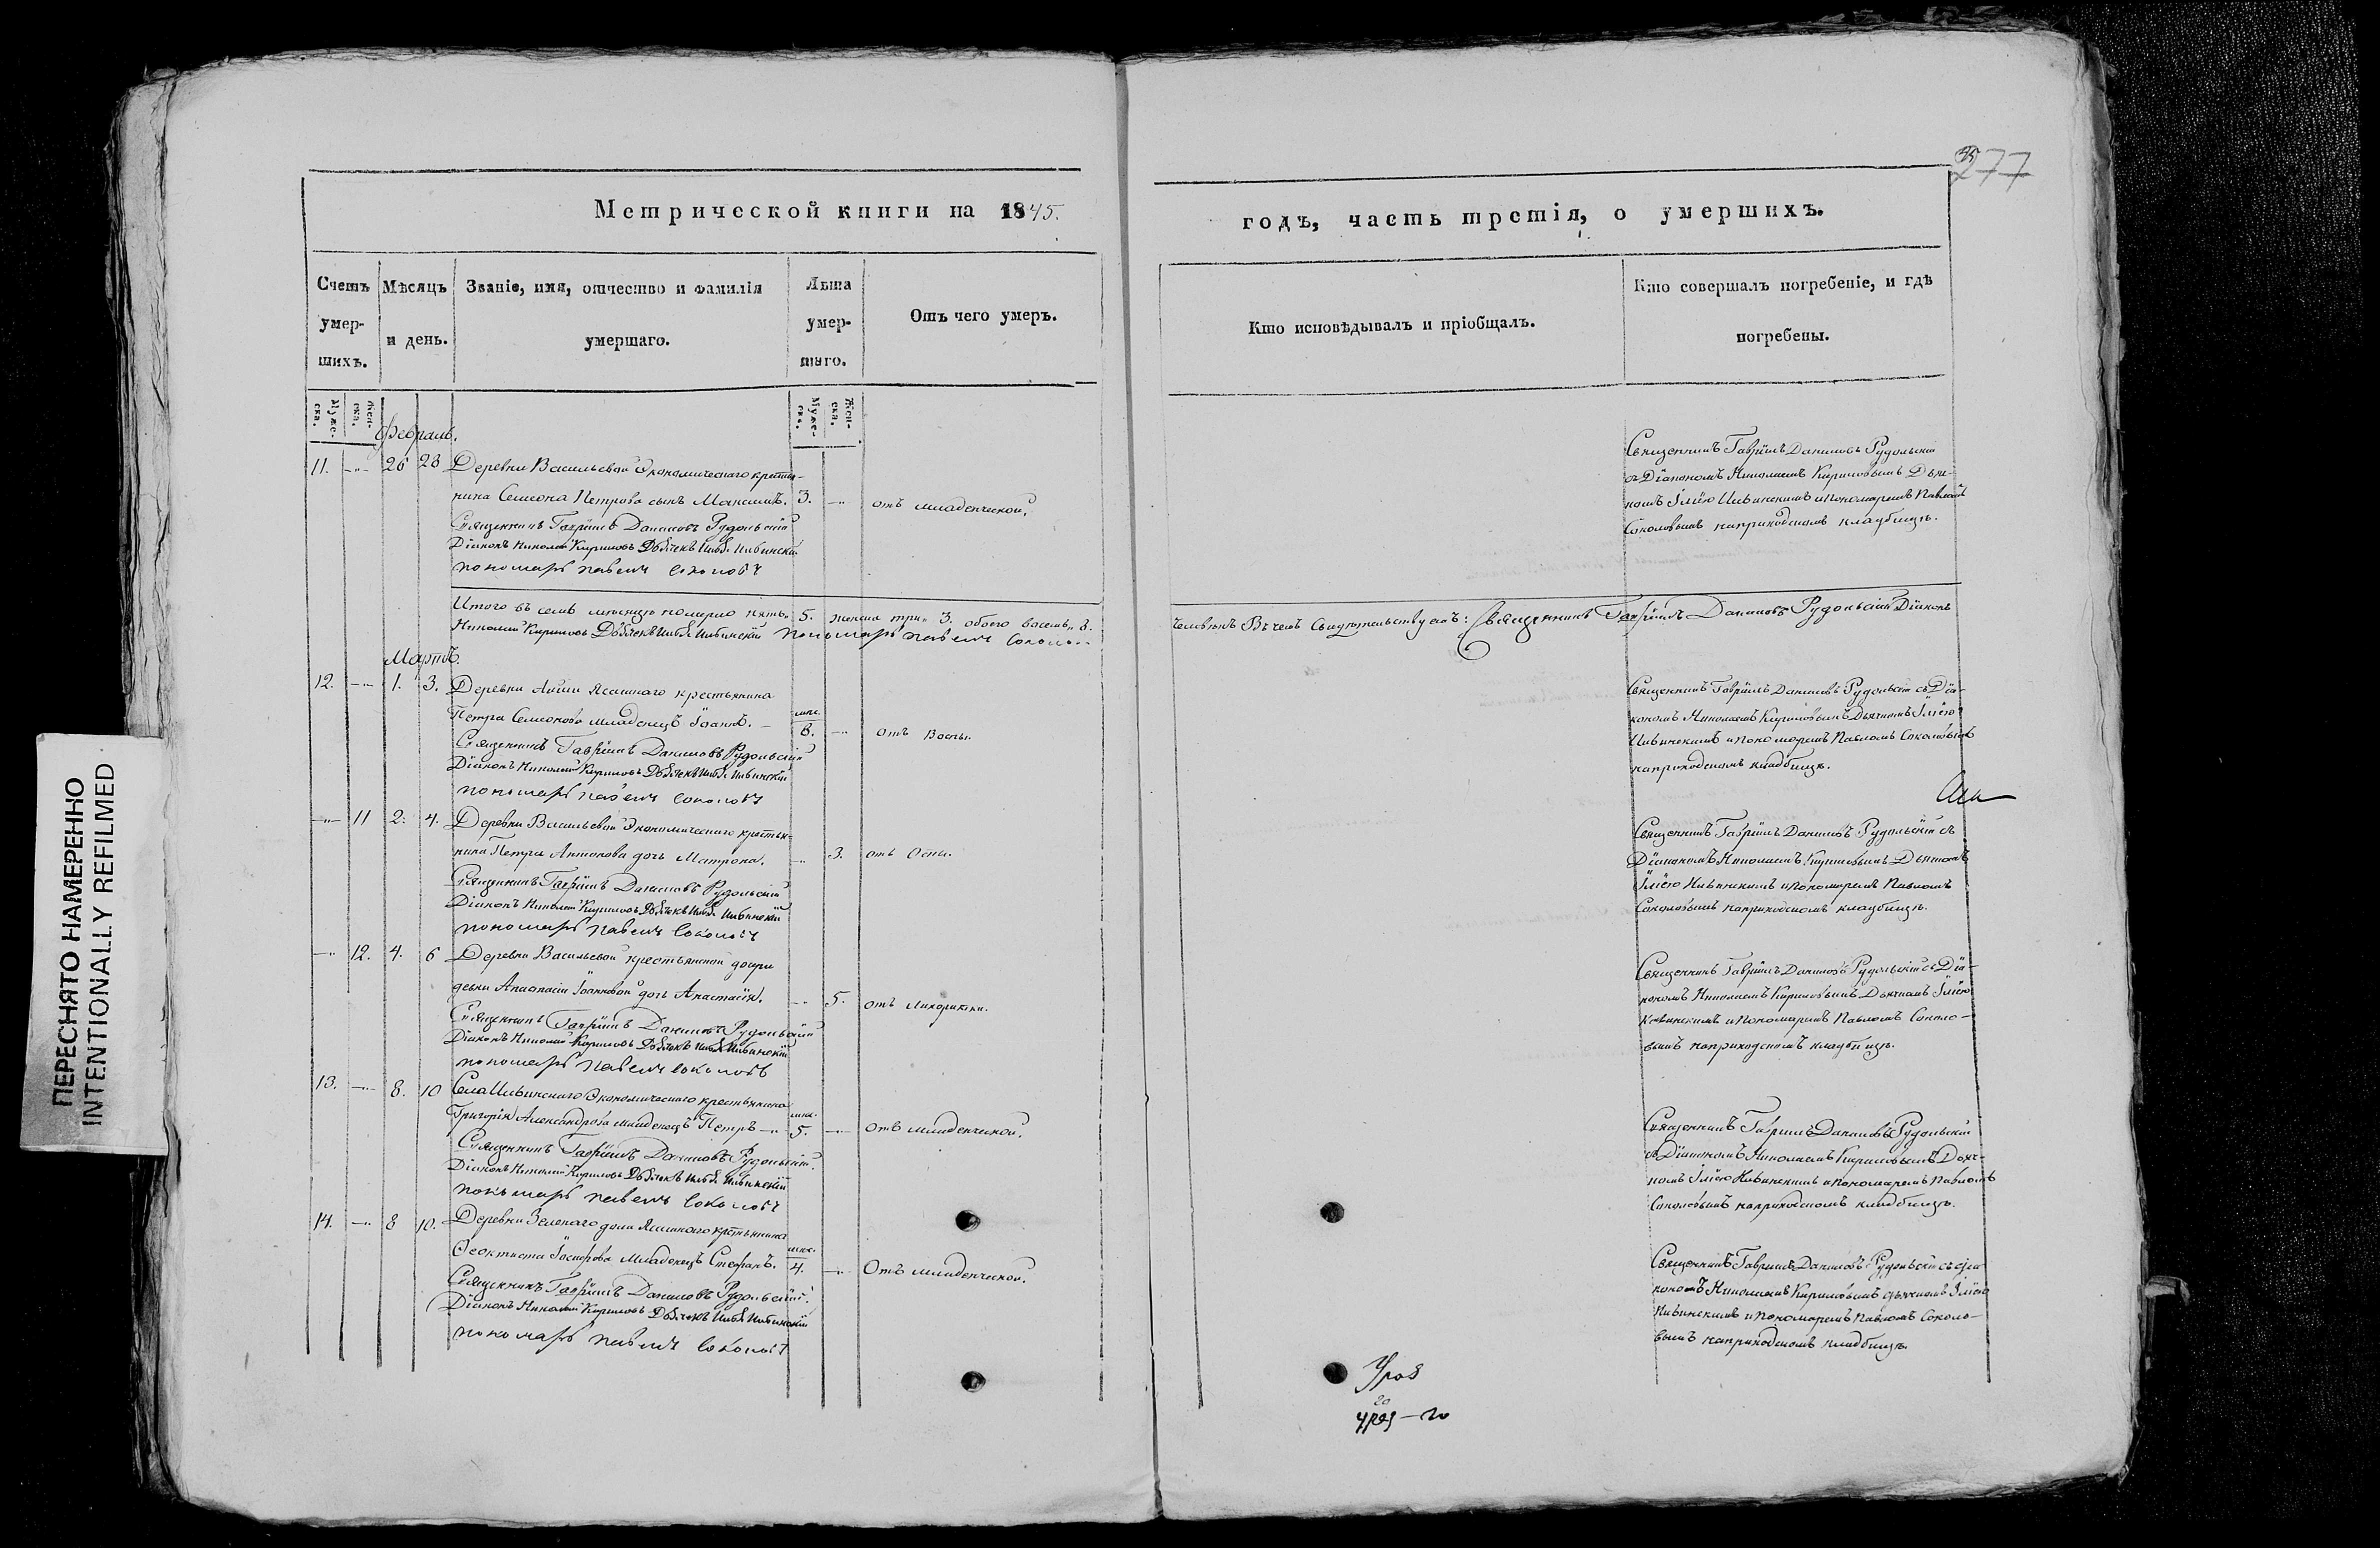 277
Метрической книги на 1845.
годъ, часть третія, о умершихъ.
Счетъ умер- шихъ.
Мѣсяцъ и день.
Званіе, имя, отчество и фамилія умершаго.
Лѣта умер- шаго.
Отъ чего умеръ.
Кто исповѣдывалъ и пріобщалъ.
Кто совершалъ погребеніе, и гдѣ погребены.
Муже- ска.
Жен- ска.
Муже- ска.
Жен- ска.
Февраль.
11. 26 28 Деревни Васильевой Экономическаго крестья-
нина Семіона Петрова сынъ Максимъ. 3. отъ младенческой.
Священникъ Гавріилъ Даниловъ Рудольскій
Діаконъ Николай Кириловъ Дьячекъ Илья Ильинскій
пономарь павелъ соколовъ
Священникъ Гавріилъ Даниловъ Рудольскій
съ Діакономъ Николаемъ Кириловымъ Дьяч-
комъ Іліею Ильинскимъ и Пономаремъ Павломъ
Соколовымъ наприходскомъ кладбищѣ.
Итого въ семъ мѣсяцѣ померло мять 5. женска три 3. обоего восемь 8.
Николай Кириловъ Дьячекъ Илья Ильинскій пономарь павелъ соколо
человѣкъ Въ чемъ Свидѣтельствуемъ: Священникъ Гавріилъ Даниловъ Рудольскій Діаконъ
Мартъ.
12. 1. 3. Деревни Ясашнаго крестьянина
Петра Семіонова младенецъ Іоаннъ. мѣс. 6. отъ Воспы.
Священникъ Гавріилъ Даниловъ Рудольскій
Діаконъ Николай Кириловъ Дьячекъ Илья Ильинскій
пономарь павелъ соколовъ
Священникъ Гавріилъ Даниловъ Рудольскій съ Діа-
кономъ Николаемъ Кириловымъ Дьячкомъ Іліею
Ильинскимъ и Пономаремъ Павломъ Соколовымъ
наприходскомъ кладбищѣ.
11 2. 4. Деревни Васильевой Экономическаго крестья-
нина Петра Антонова дочь Матрона. 3. отъ Оспы.
Священникъ Гавріилъ Даниловъ Рудольскій
Діаконъ Николай Кириловъ Дьячекъ Илья Ильинскій
пономарь павелъ соколовъ
Священникъ Гавріилъ Даниловъ Рудольскій съ
Діакономъ Николаемъ Кириловымъ Дьячкомъ
Іліею Ильинскимъ и Пономаремъ Павломъ
Соколовымъ наприходскомъ кладбищѣ.
12. 4. 6 Деревни Васильевой крестьянской дочери
девки Іоанновой дочь Анастасія. 5. отъ Лихоратки.
Священникъ Гавріилъ Даниловъ Рудольскій
Діаконъ Николай Кириловъ Дьячекъ Илья Ильинскій
пономарь павелъ соколовъ
Священникъ Гавріилъ Даниловъ Рудольскій съ Діа-
кономъ Николаемъ Кириловымъ Дьячкомъ Іліею
Ильинскимъ и Пономаремъ Павломъ Соколо-
вымъ наприходскомъ кладбищѣ.
13. 8. 10 Села Ильинскаго Экономическаго крестьянина
Григорія Александрова младенецъ Петръ мѣс. 5. отъ младенческой.
Священникъ Гавріилъ Даниловъ Рудольскій
Діаконъ Николай Кириловъ Дьячекъ Илья Ильинскій
пономарь павелъ соколовъ
Священникъ Гавріилъ Даниловъ Рудольскій
съ Діакономъ Николаемъ Кириловымъ Дьяч-
комъ Іліею Ильинскимъ и Пономаремъ Павломъ
Соколовымъ наприходскомъ кладбищѣ.
14. 8 10. Деревни Зеленаго дола Ясашнаго крестьянина
Феоктиста Іосифова младенецъ Стефанъ. мѣс. 4. Отъ младенческой.
Священникъ Гавріилъ Даниловъ Рудольскій.
Діаконъ Николай Кириловъ Дьячекъ Илья Ильинскій
пономарь павелъ соколовъ
Священникъ Гавріилъ Даниловъ Рудольскій съ діа
кономъ Николаемъ Кириловымъ дьячкомъ Іліею
Ильинскимъ и Пономаремъ Павломъ Соколо-
вымъ наприходскомъ кладбищѣ.
ПЕРЕСНЯТО НАМЕРЕННО
INTENTIONALLY REFILMED